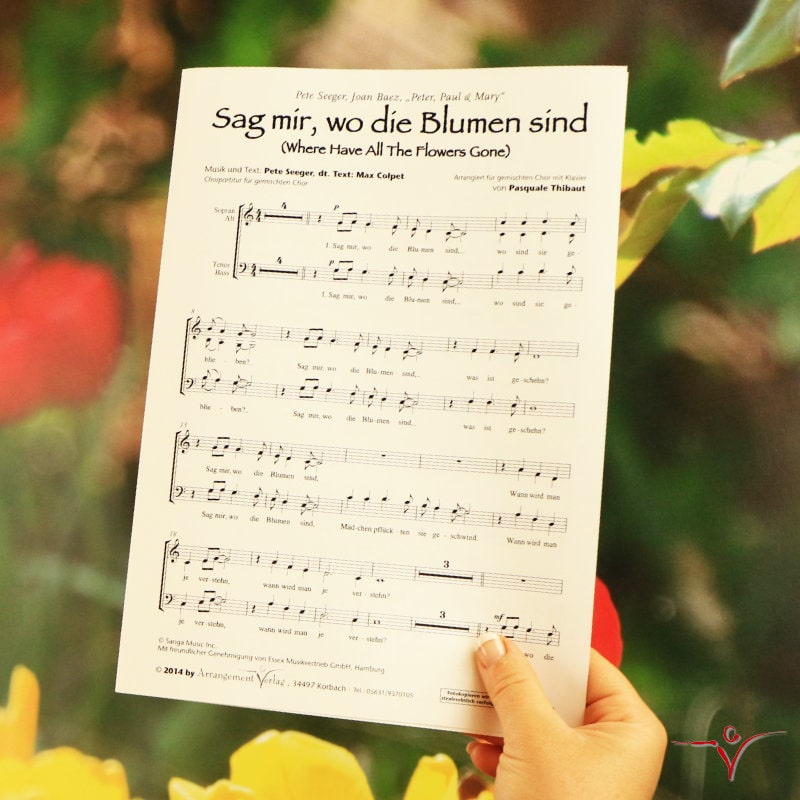 Pete Seeger, Joan Baez, „Peter, Paul & Mary"
Sag mir, wo die Blumen sind
(Where Have All The Flowers Gone)
Musik und Text: Pete Seeger, dt. Text: Max Colpet
Chorpartitur für gemischten Chor
Arrangiert für gemischten Chor mit Klavier
von Pasquale Thibaut
Sopran
Alt
4
p
1. Sag mir, wo die Blu-men sind,.. wo sind sie ge-
Tenor
Bass
4
p
1. Sag mir, wo die Blu-men sind,.. wo sind sie ge-
8
blie - ben? Sag mir, wo die Blu-men sind,.. was ist ge-schehn?
blie - ben?.. Sag mir, wo die Blu-men sind,.. was ist ge-schehn?
13
Sag mir, wo die Blumen sind, Wann wird man
Sag mir, wo die Blumen sind, Mäd-chen pflück - ten sie ge - schwind. Wann wird man
18
3
je ver-stehn, wann wird man je ver-stehn?
3
mf
je ver-stehn, wann wird man je ver-stehn? wo die
© Sanga Music Inc.
Mit freundlicher Genehmigung von Essex Musikvertrieb GmbH, Hamburg
© 2014 by Arrangement Verlag . 34497 Korbach Tel.: 05631/9370105
Fotokopieren
strafrechtlich verfolg